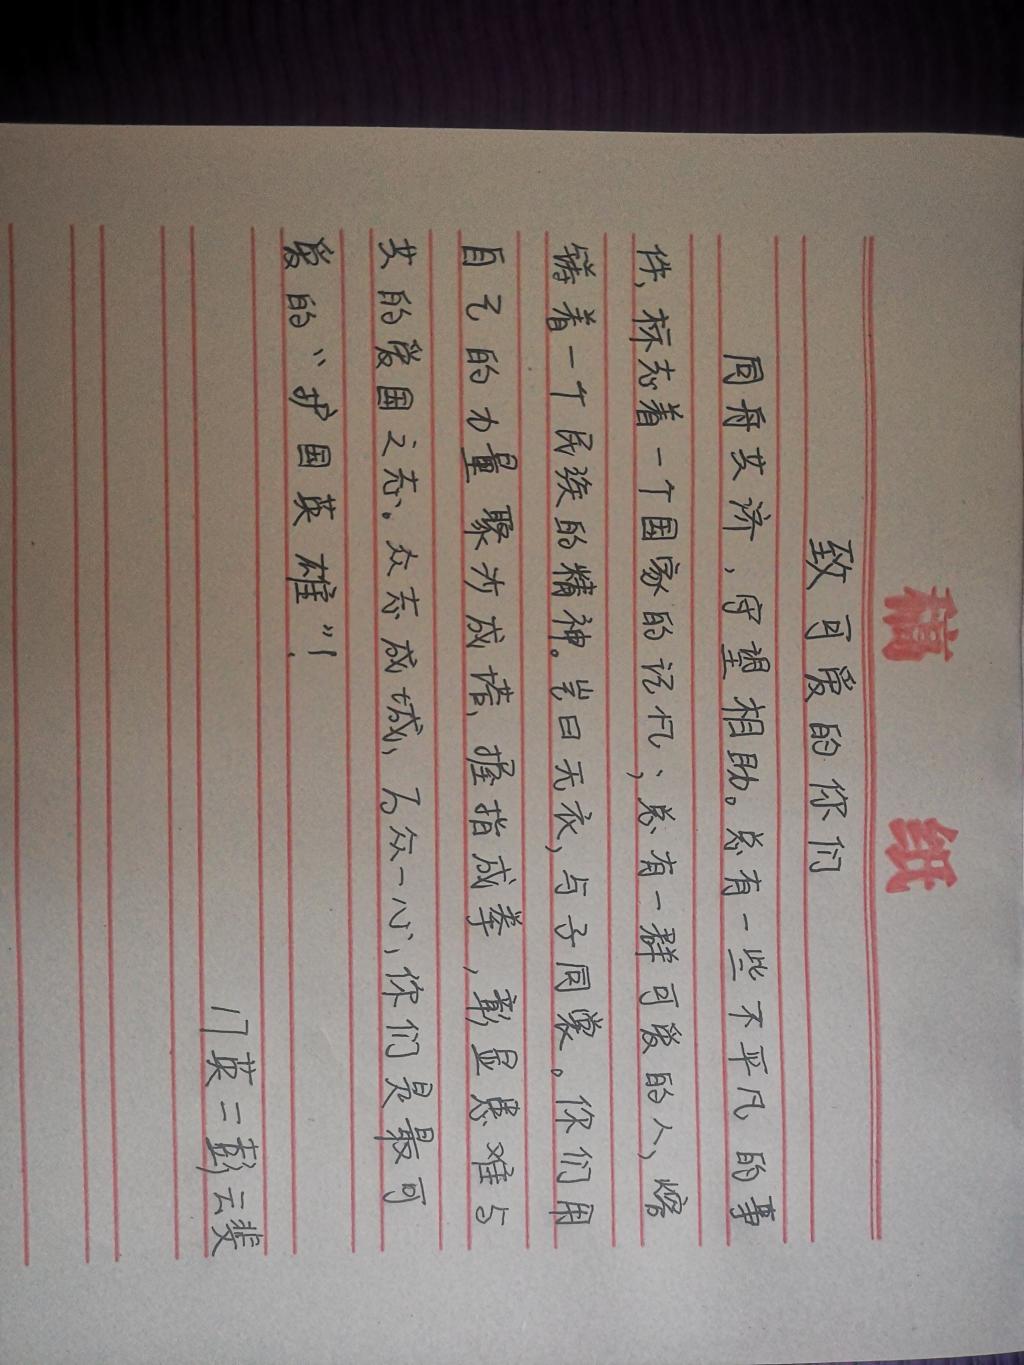 稿 纸
致可爱的你们
同舟共济,守望相助。总有一些不平凡的事
件,标志着一个国家的记忆,总有一群可爱的人,熔
铸着一个民族的精神。岂曰无衣,与子同裳。你们用
自己的力量聚沙成塔,握指成拳,彰显患难与
共的爱国之志。众志成城,万众一心,你们是最可
爱的“护国英雄”!
门英二彭云斐